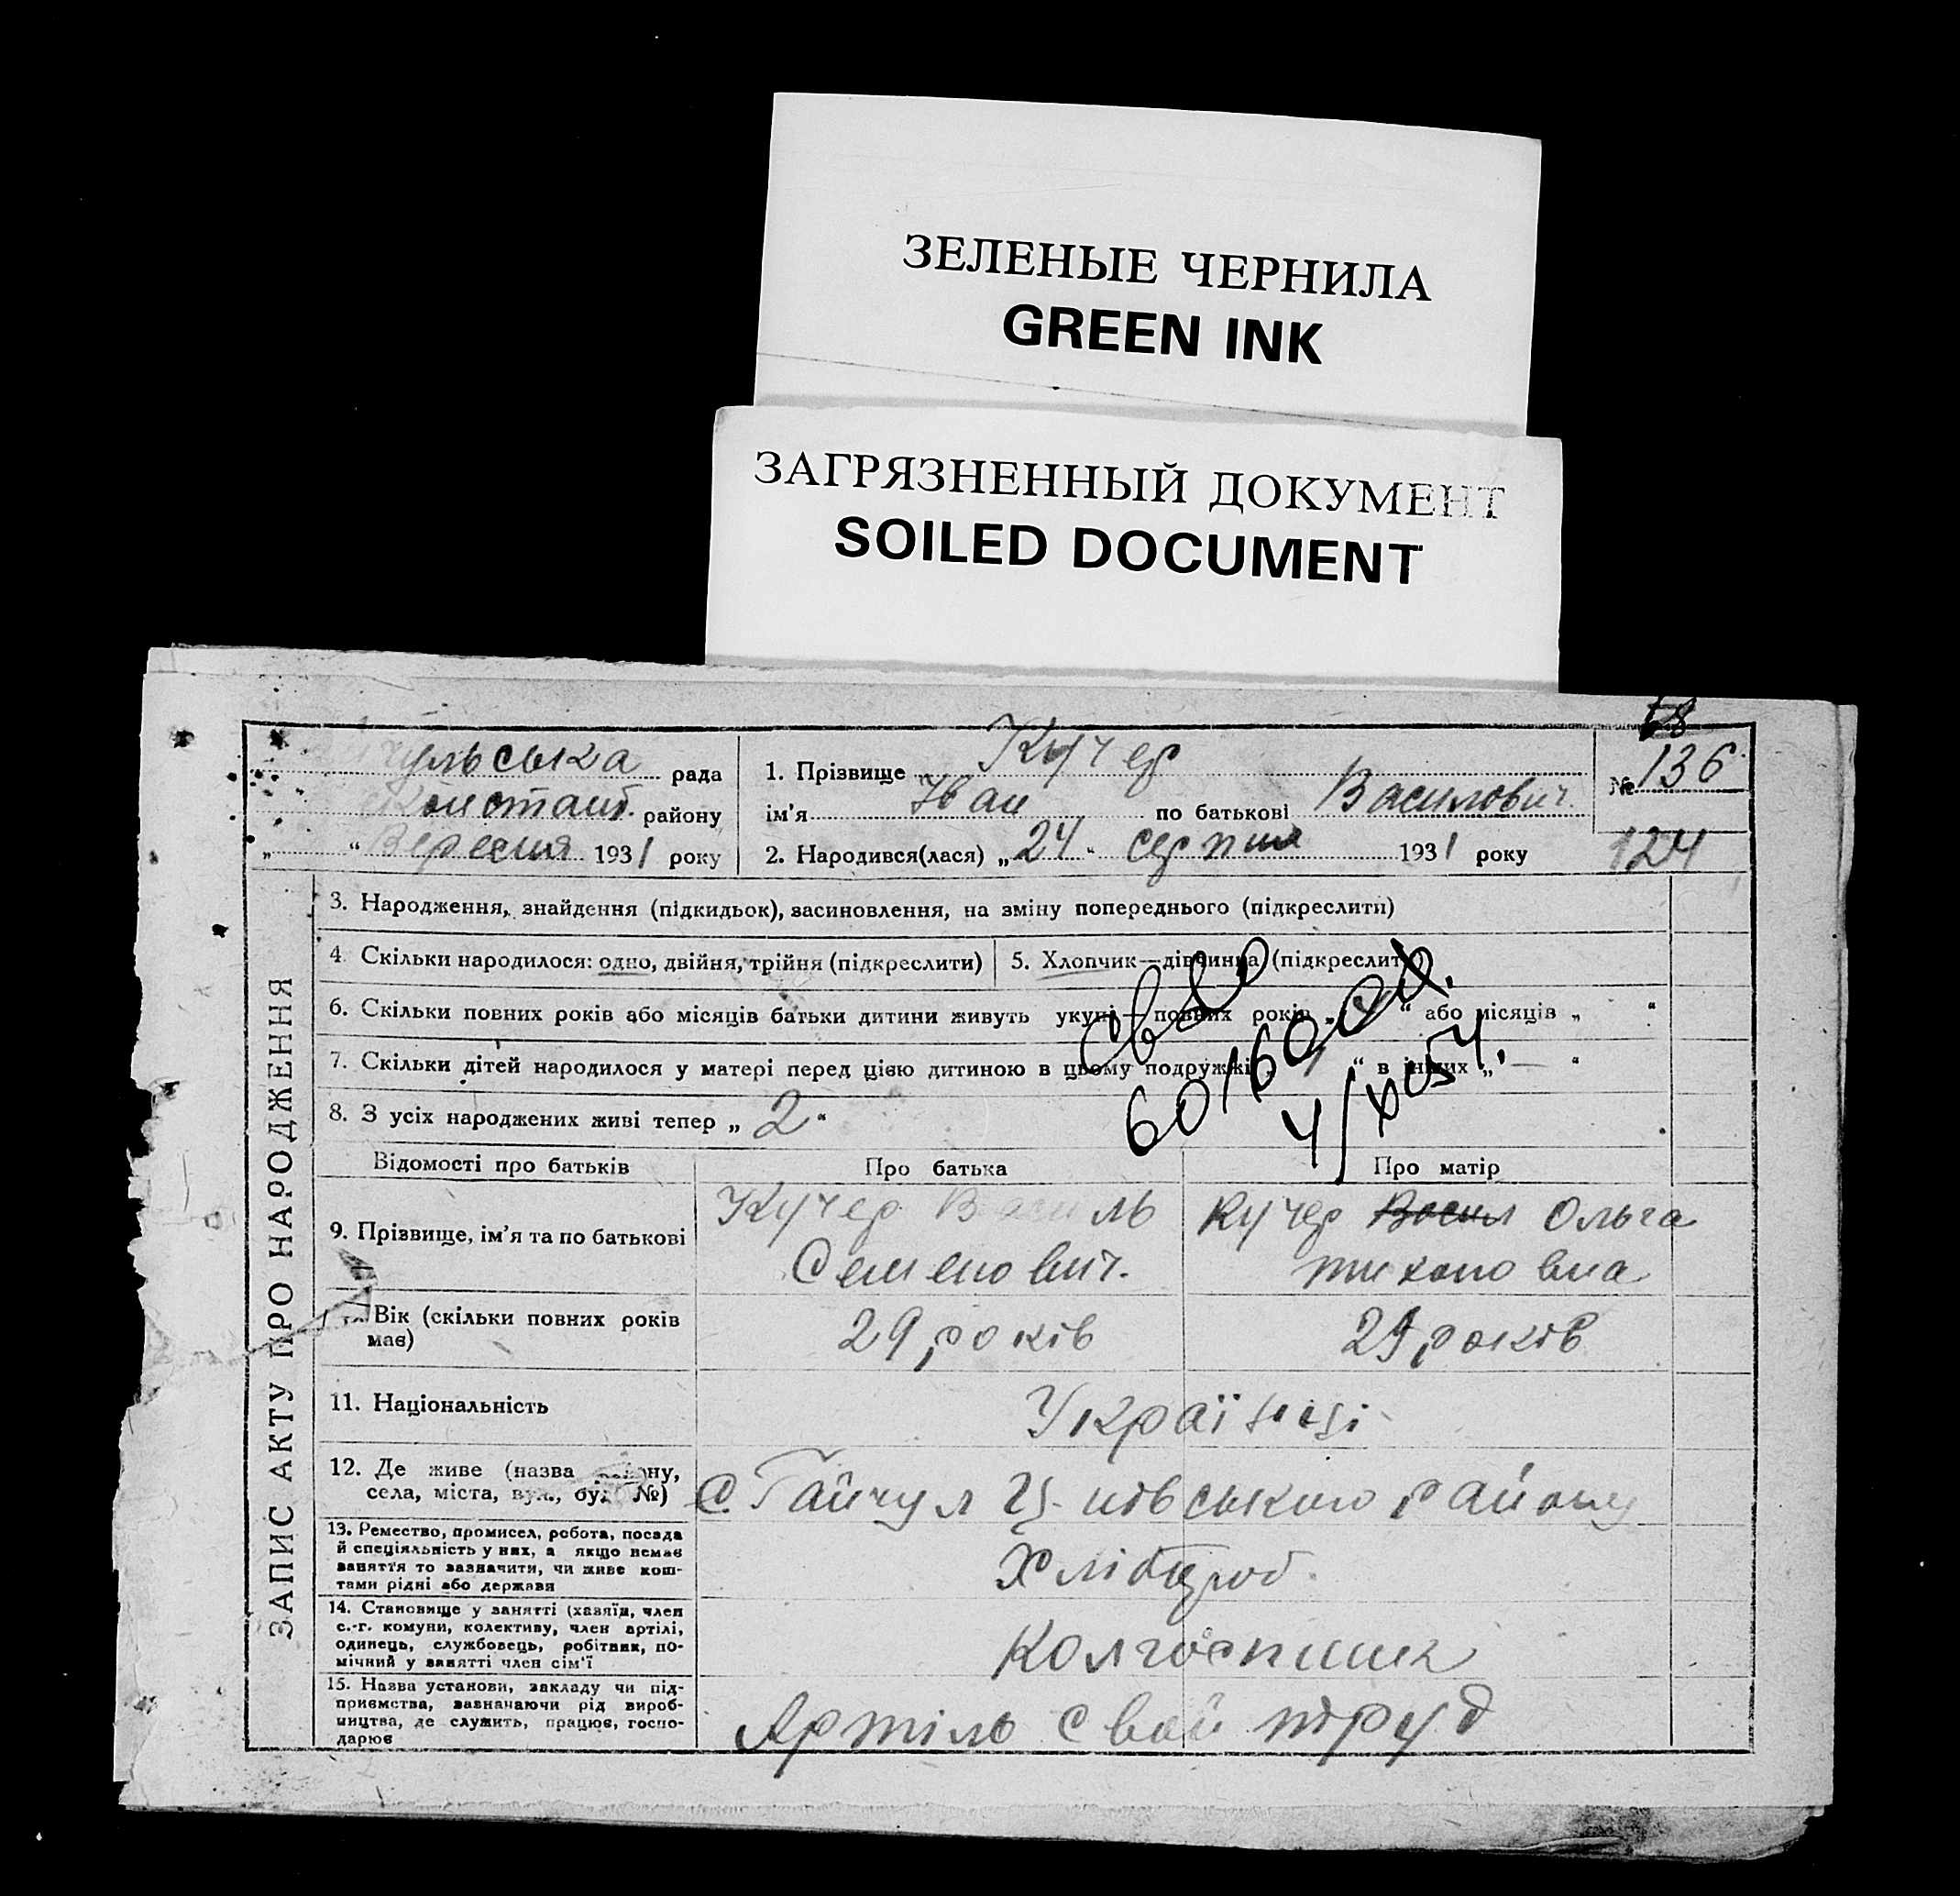 ЗЕЛЕНЫЕ ЧЕРНИЛА
GREEN INK
ЗАГРЯЗНЕННЫЙ ДОКУМЕНТ
SOILED DOCUMENT
68
рада
Констант. району
„ “ Вересня 1931 року
1. Прізвище Кучер
ім'я Іван по батькові Василович
2. Народився(лася) „24“ серпня 1931 року
№ 136
124
ЗАПИС АКТУ ПРО НАРОДЖЕННЯ
3. Народження, знайдення (підкидьок), засиновлення, на зміну попереднього (підкреслити)
4. Скільки народилося: одно, двійня, трійня (підкреслити)
5. Хлопчик—дівчинка (підкреслити)
6. Скільки повних років або місяців батьки дитини живуть укупі— повних років „ “ або місяців „ “
7. Скільки дітей народилося у матері перед цією дитиною в цьому подружжі „ “ в інших „—“
8. З усіх народжених живі тепер „2“
Відомості про батьків
Про батька
Про матір
9. Прізвище, ім'я та по батькові
Кучер Василь
Семенович.
Кучер Васил Ольга
тихоновна
Вік (скільки повних років
має)
29 років
29 років
11. Національність
Українці
12. Де живе (назва району,
села, міста, вул., буд. №)
с. Гайчул Ц-нівського району
13. Ремество, промисел, робота, посада
й спеціяльність у них, а якщо немає
заняття то зазначити, чи живе кош-
тами рідні або держави
Хлібороб.
14. Становище у занятті (хазяїн, член
с.-г. комуни, колективу, член артілі,
одинець, службовець, робітник, по-
мічний у занятті член сім'ї
Колгоспник
15. Назва установи, закладу чи під-
приємства, зазначаючи рід вироб-
ництва, де служить, працює, госпо-
дарює
Артіль Свой труд